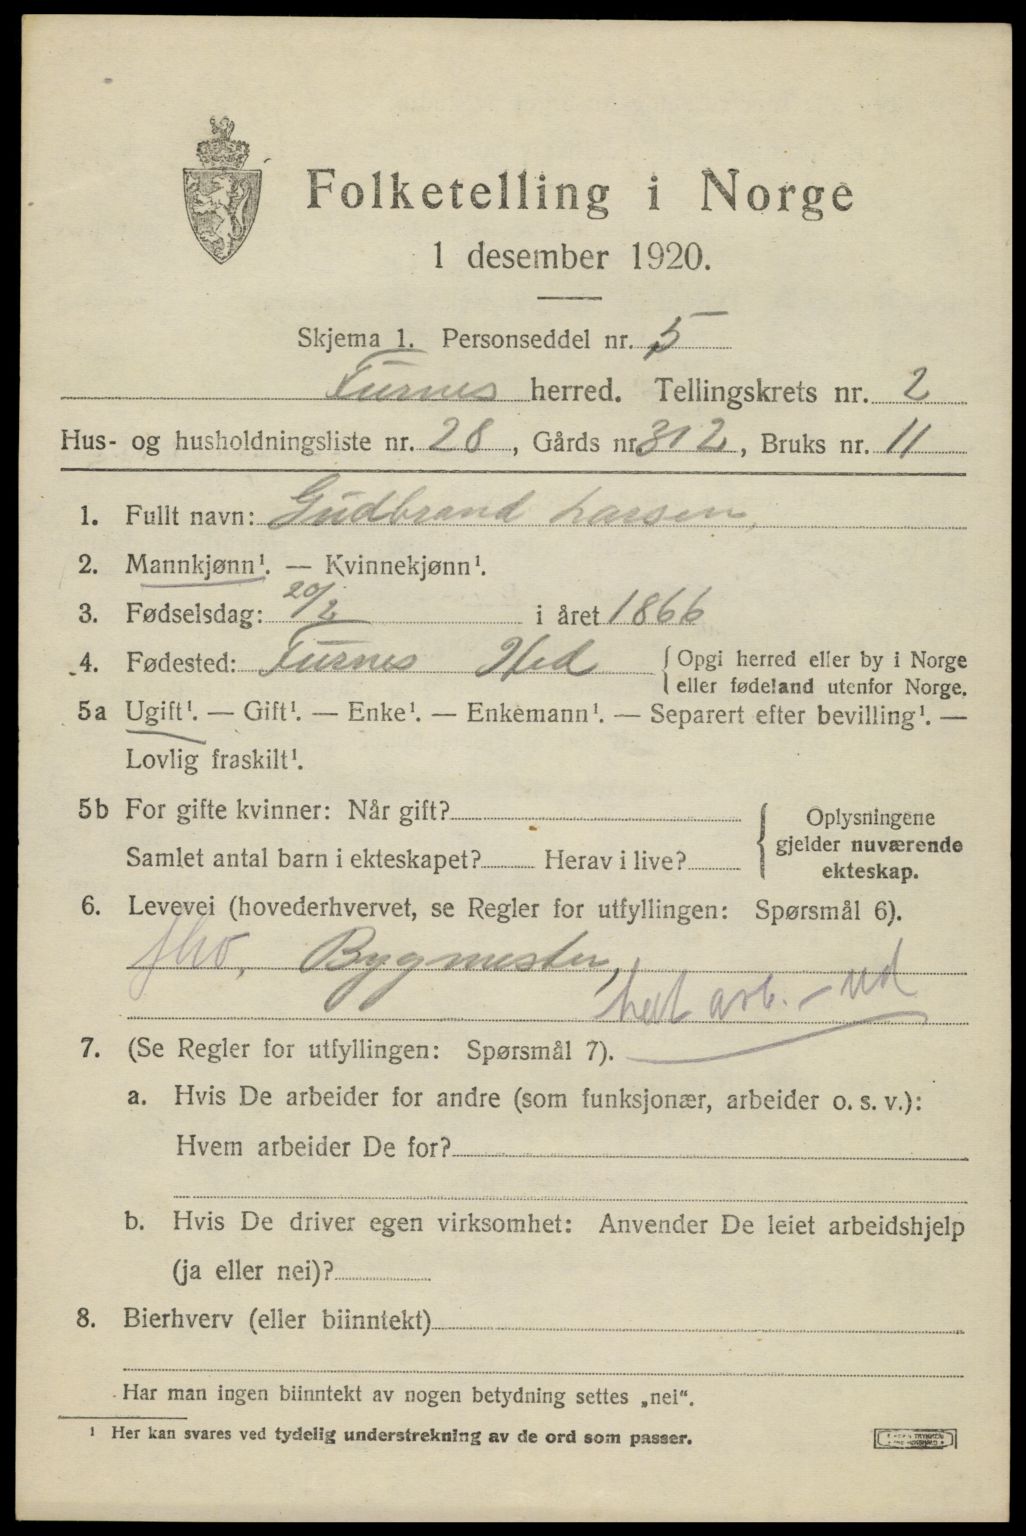 Folketelling i Norge
1 desember 1920.
Skjema 1. Personseddel nr. 5
Furnes herred. Tellingskrets nr. 2
Hus- og husholdningsliste nr. 28, Gårds nr. 312, Bruks nr. 11
1. Fullt navn: Gudbrand Larsen,
2. Mannkjønn¹. — Kvinnekjønn¹.
3. Fødselsdag: 20/2 i året 1866
4. Fødested: Furnes Hed
{ Opgi herred eller by i Norge
eller fødeland utenfor Norge.
5a Ugift¹. — Gift¹. — Enke¹. — Enkemann¹. — Separert efter bevilling¹. —
Lovlig fraskilt¹.
5b For gifte kvinner: Når gift?
Samlet antal barn i ekteskapet? Herav i live?
{ Oplysningene
gjelder nuværende
ekteskap.
6. Levevei (hovederhvervet, se Regler for utfyllingen: Spørsmål 6).
Bygmester,
arb. – ud
7. (Se Regler for utfyllingen: Spørsmål 7).
a. Hvis De arbeider for andre (som funksjonær, arbeider o. s. v.):
Hvem arbeider De for?
b. Hvis De driver egen virksomhet: Anvender De leiet arbeidshjelp
(ja eller nei)?
8. Bierhverv (eller biinntekt)
Har man ingen biinntekt av nogen betydning settes „nei“.
¹ Her kan svares ved tydelig understrekning av de ord som passer.